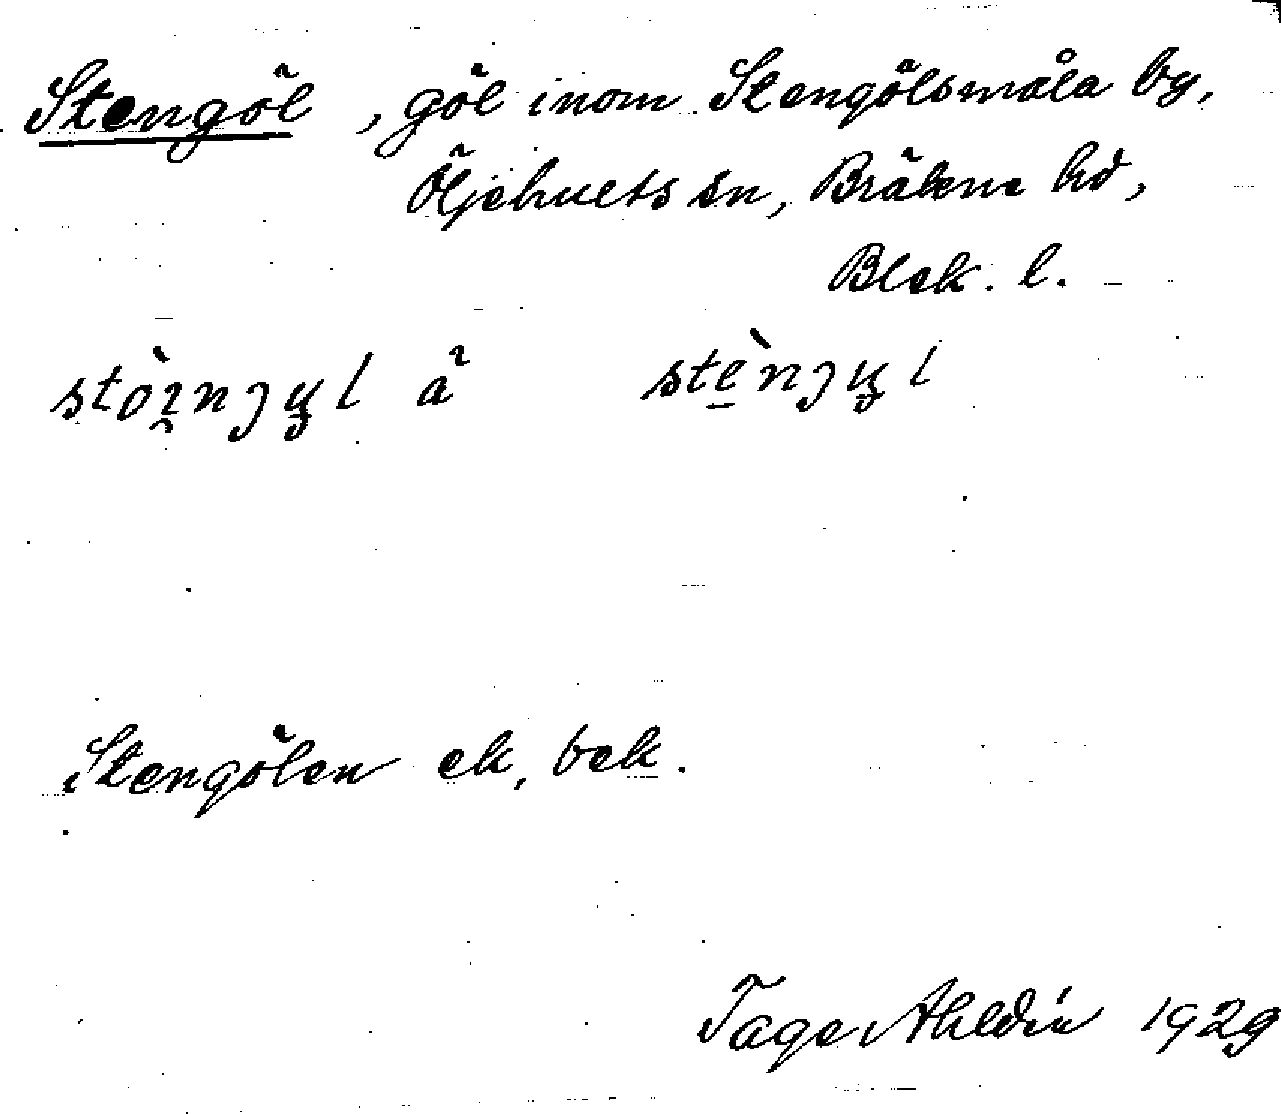 Stengöl, göl inom Stengölsmåla by,
Öljehults sn, Bräkne hd,
Blek. l.
ä
Stengölen ek, bek.
Tage Ahldén 1929